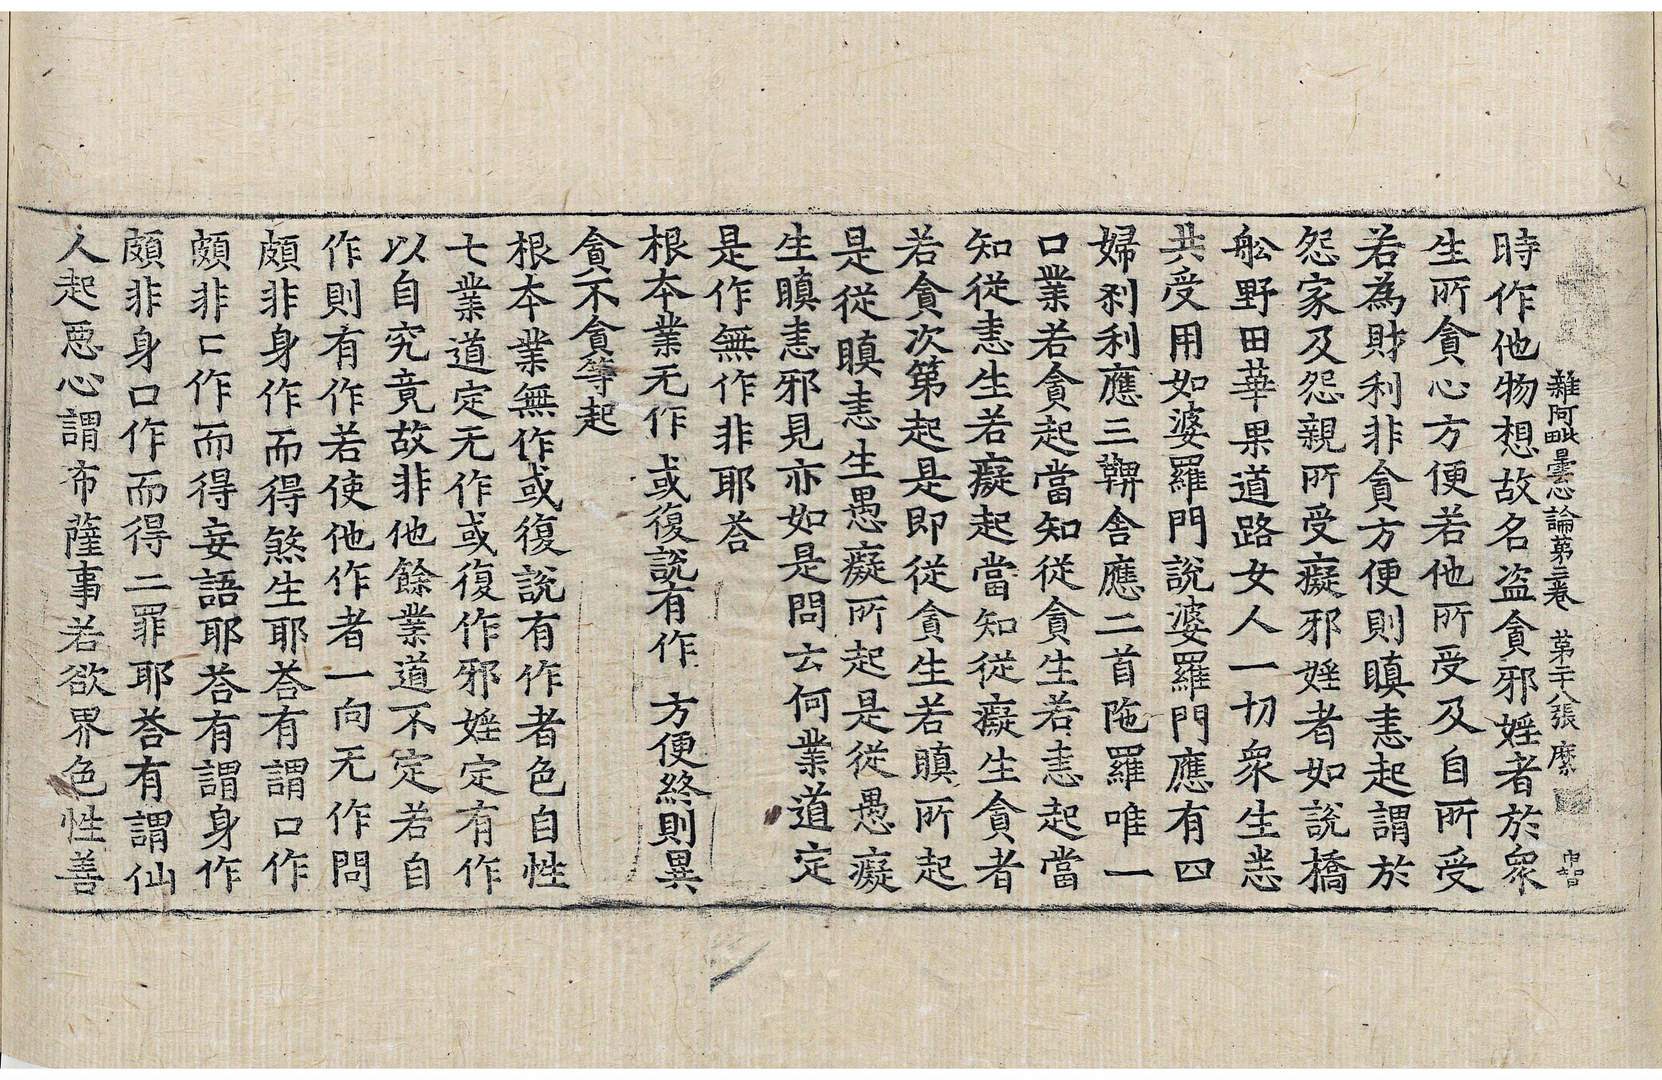 雜阿毗曇心論第三卷 第二十八張 縻 中智
時作他物想故名盗貪邪婬者於衆
生所貪心方便若他所受及自所受
若為財利非貪方便則瞋恚起謂於
怨家及怨親所受癡邪婬者如說橋
舩野田華果道路女人一切衆生悉
共受用如婆羅門說婆羅門應有四
婦刹利應三鞞舎應二首陁羅唯一
口業若貪起當知從貪生若恚起當
知從恚生若癡起當知從癡生貪者
若貪次第起是即從貪生若瞋所起
是從瞋恚生愚癡所起是從愚癡
生瞋恚邪見亦如是問云何業道定
是作無作非耶荅
根本業无作 或復說有作 方便終則異
貪不貪等起
根本業無作或復說有作者色自性
七業道定无作或復作邪婬定有作
以自究竟故非他餘業道不定若自
作則有作若使他作者一向无作問
頗非身作而得煞生耶荅有謂口作
頗非口作而得妄語耶荅有謂身作
頗非身口作而得二罪耶荅有謂仙
人起惡心謂布薩事若欲界色性善